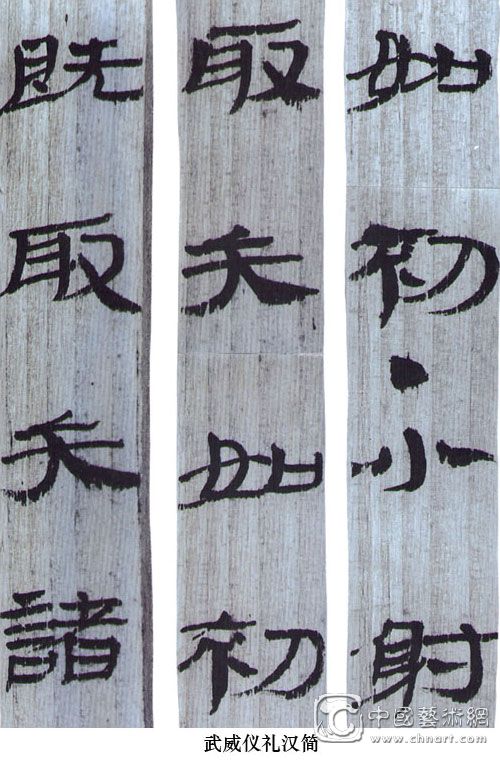 如初·小射
取矢如初
既取矢諸
中國藝術網
www.chnart.com
武威仪礼汉简